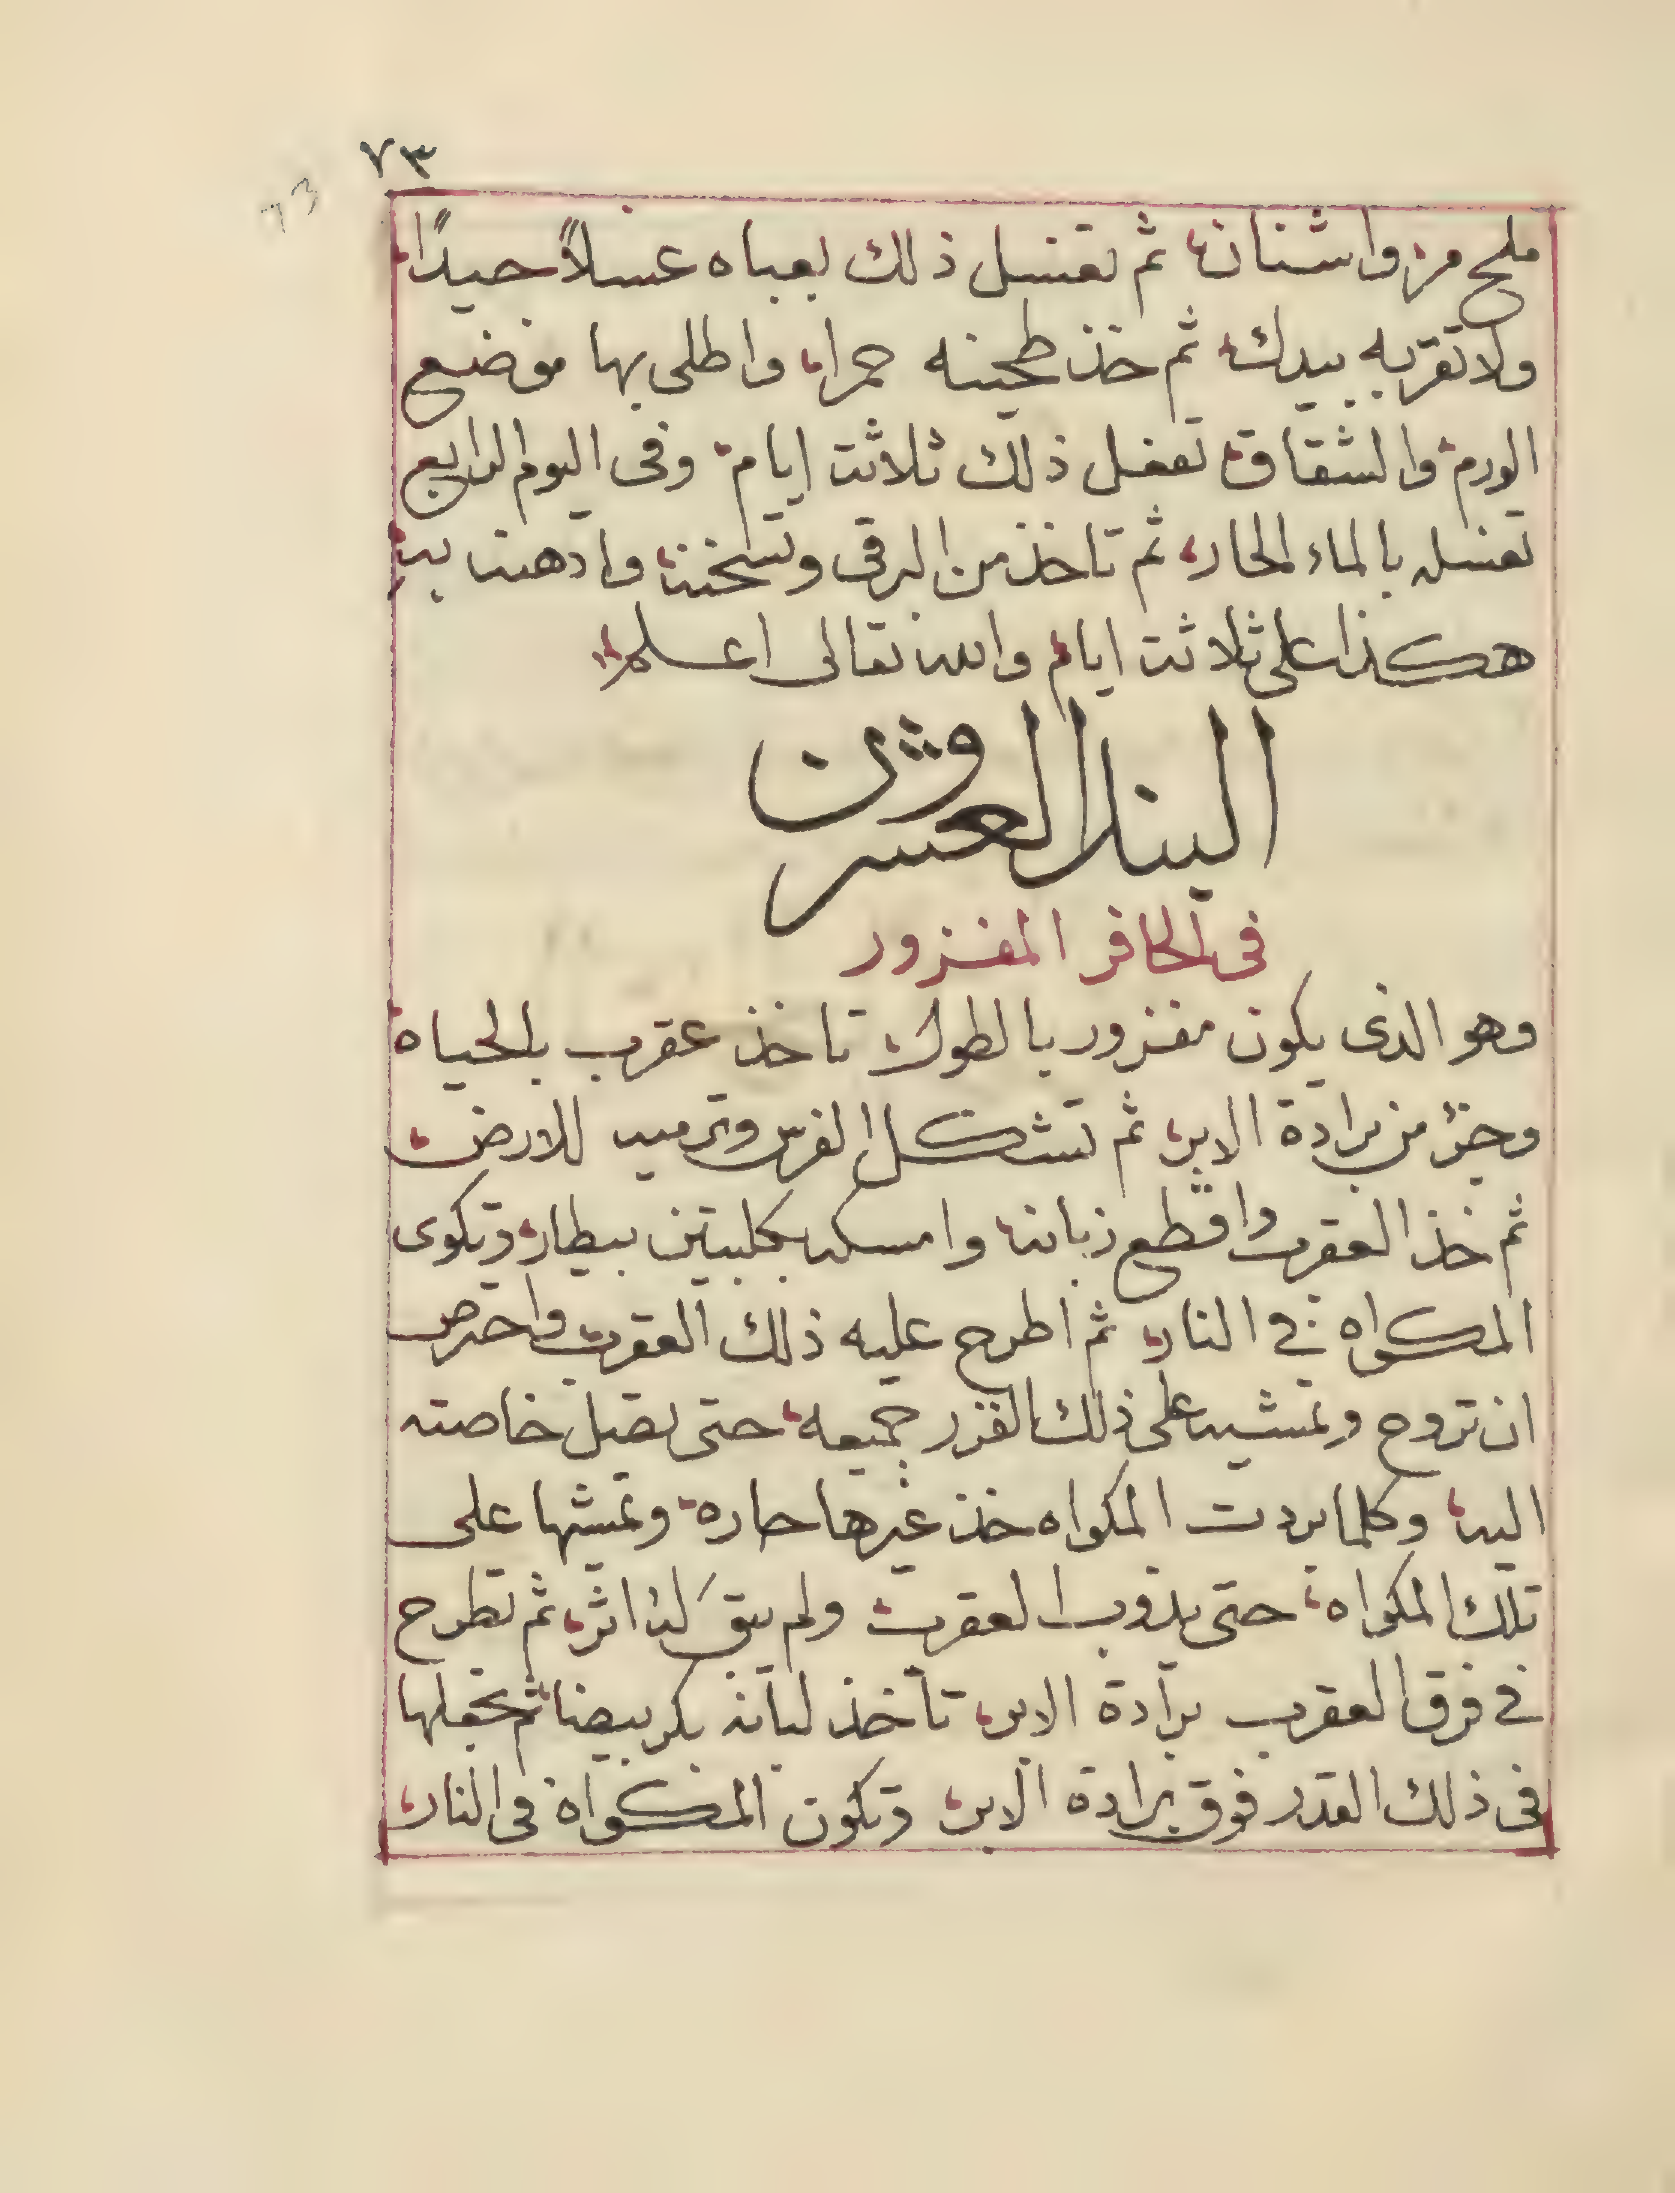 ٧٣
73
ملح مر واشنان ثم تغسل ذلك بعباه غسلاً جيدًا
ولا تقربه بيدك ثم خذ طحينه حمرا واطلى بها موضع
الورم والشقاق تفعل ذلك ثلاثة ايام وفى اليوم الرابع
تغسله بالماء الحار ثم تاخذ من البرقى وتسخنه وادهنه به
هكذا على ثلاثة ايام والله تعالى اعلم
العشرون
فى الحافر المفزور
وهو الذى يكون مفزور بالطول تاخذ عقرب بالحياة
وجزؤ من برادة الابر ثم تشكل الفرس وترميه للارض
ثم خذ العقرب واقطع زبانه وامسكه بكلبتين بيطار وتكوى
المكواه فى النار ثم اطرح عليه ذلك العقرب واحرص
ان تروح وتمشيه على ذلك الفزر جميعه حتى تصل خاصته
اليه وكلما بردت المكواه خذ غيرها حاره وتمشها على
تلك المكواه حتى يذوب العقرب ولم يبق له اثر ثم تطرح
فى فرق العقرب برادة الابر تأخذ لبانه بكر بيضا ثم تجعلها
فى ذلك القدر فوق برادة الابر وتكون المكواة فى النار